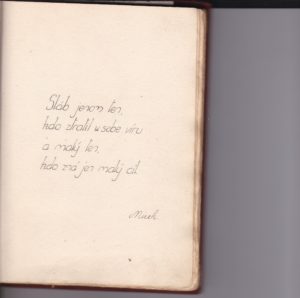 Sláb jenom ten,
kdo ztratil v sebe víru
a malý ten,
kdo zná jen malý cíl.